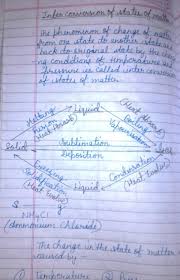 Inter conversion of states of matter
The phenomenon of change of matter
from one state to another state and
back to original state by
conditions of temperature and
pressure is called inter conversion
of states of matter.
Melting
Fusion
(Heat Absorb)
Liquid
(Heat Absorb)
Boiling
Vapourisation
Solid
Sublimation
Deposition
Freezing
Solidification
(Heat Evolve)
Liquid
Condensation
(Heat Evolve)
S
NH4Cl
(Ammonium Chloride)
The change in the state of matter
caused by
Temperature